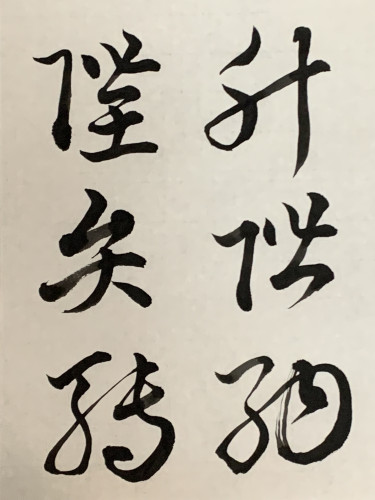 升階納
陛弁轉